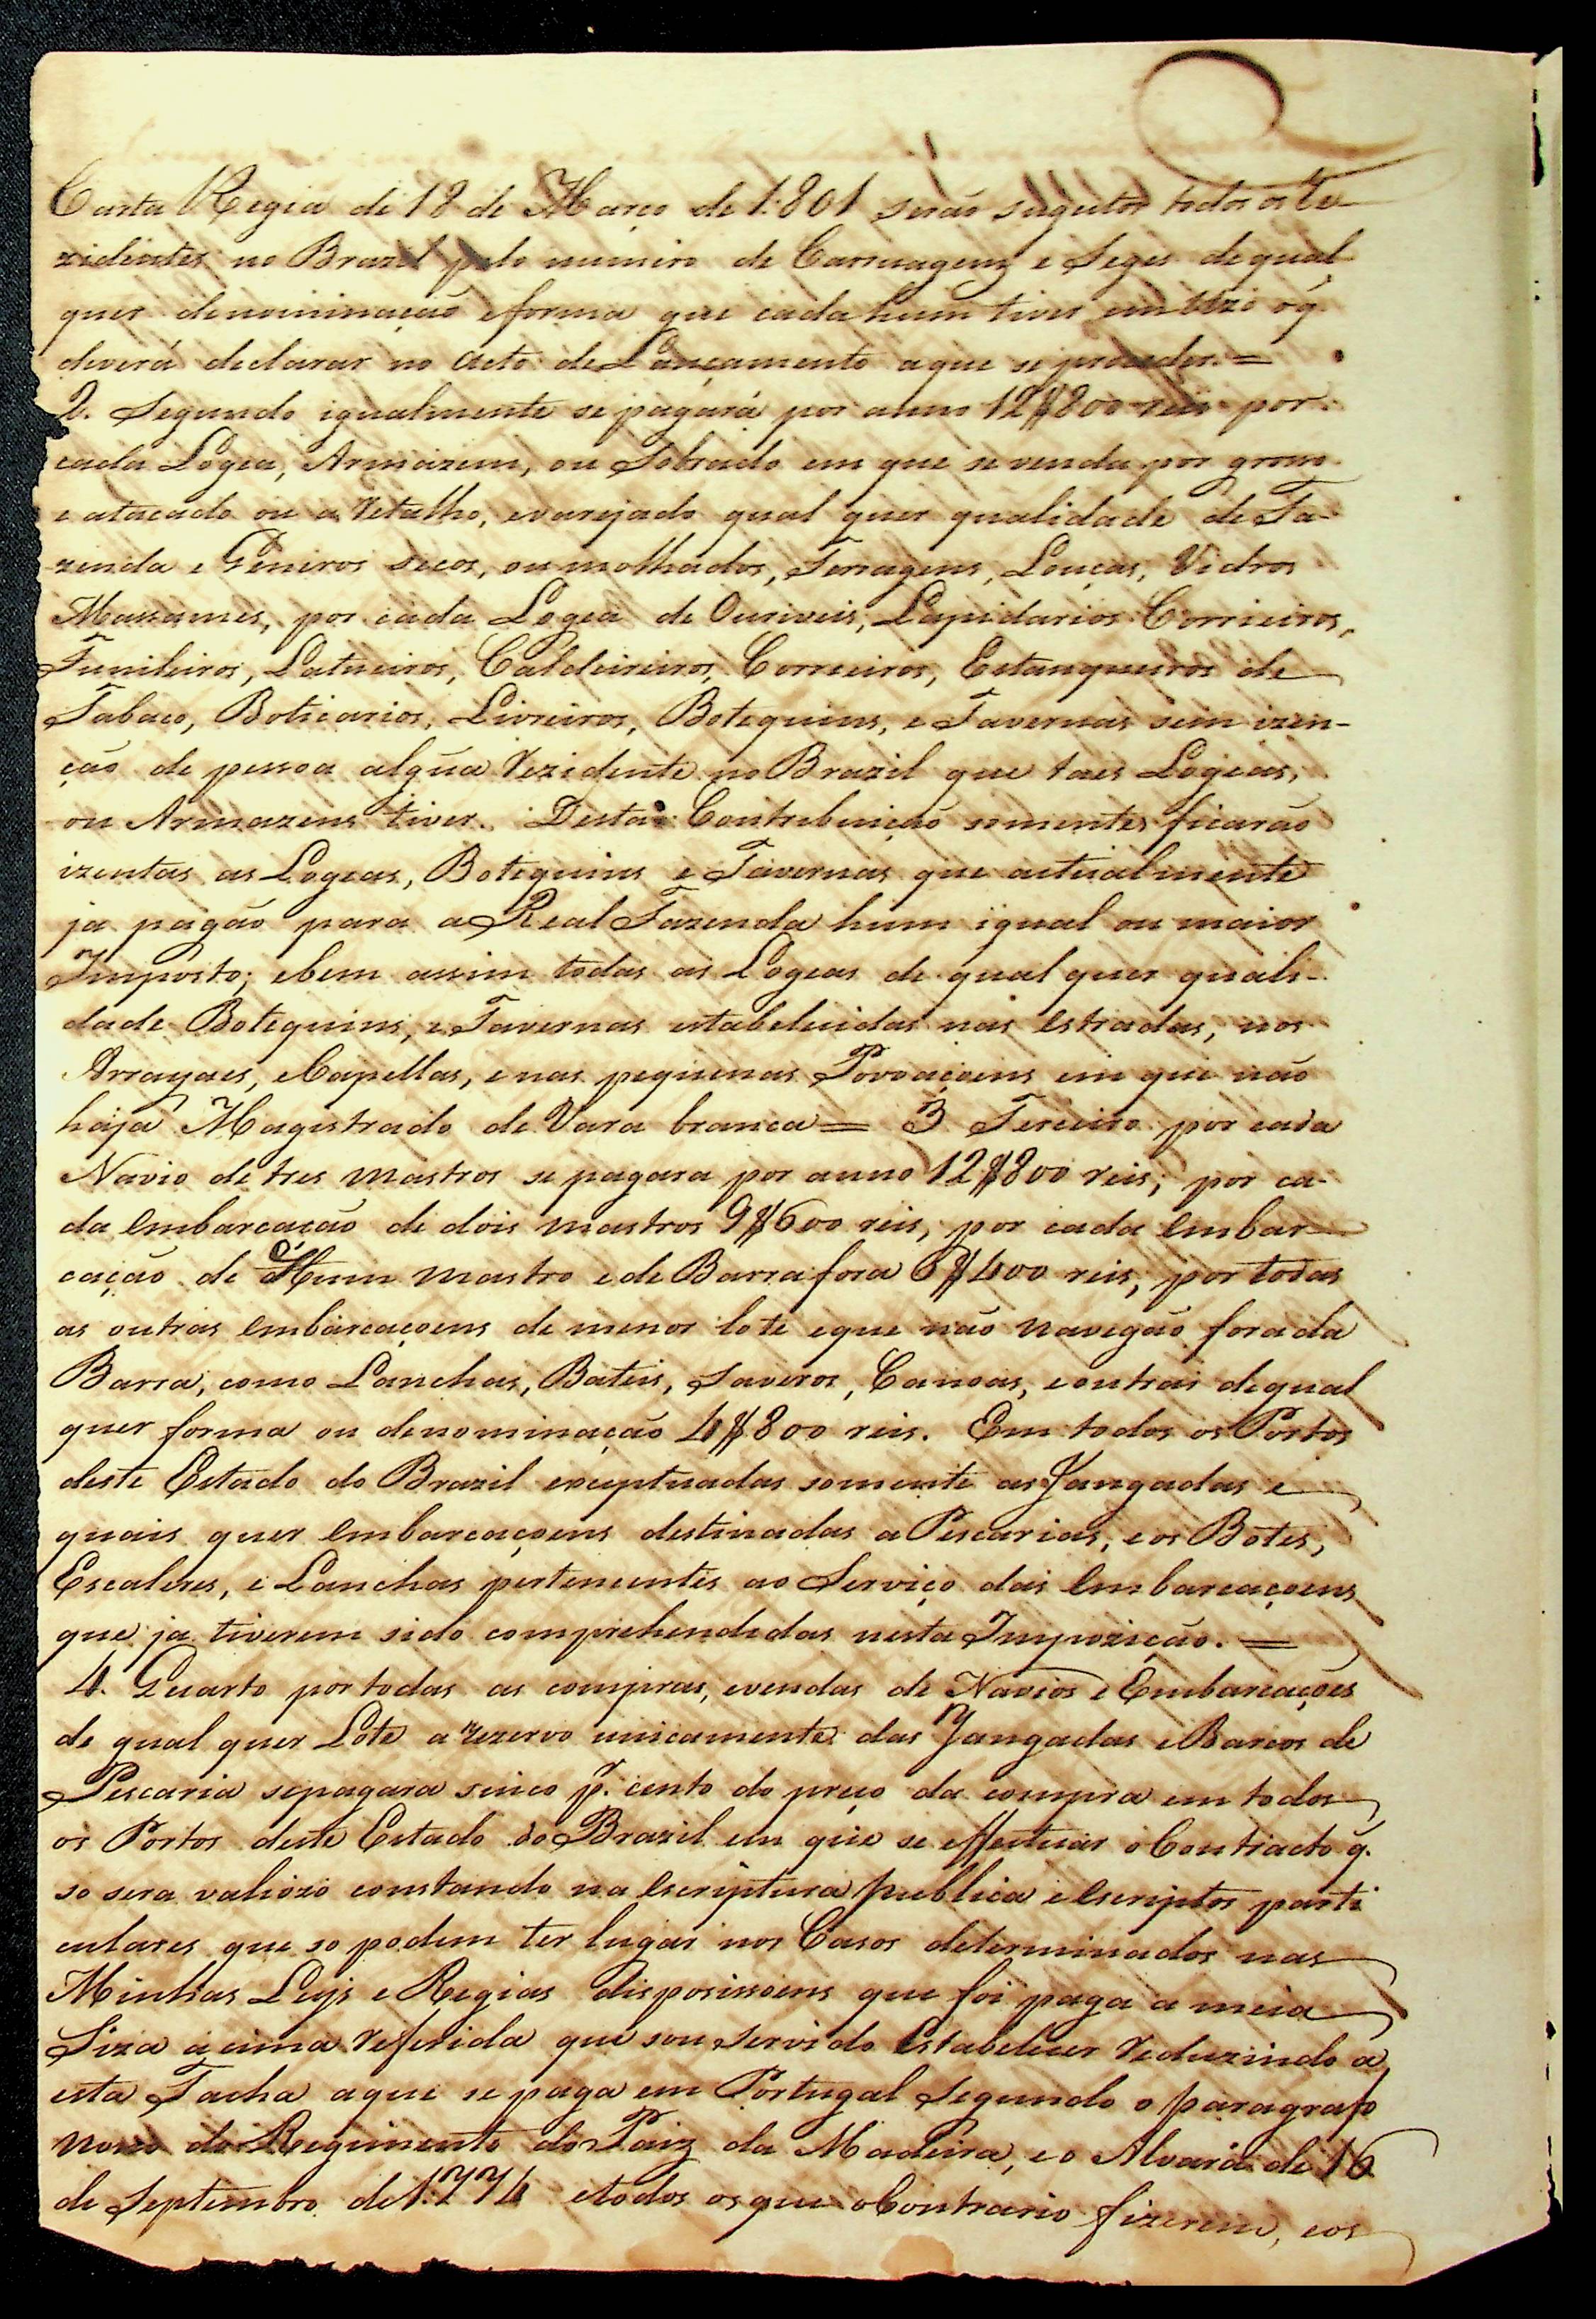 Carta Regia de 18 de Março de 1.801 serão sugeitos todos os Re
zidentes no Brazil pelo numero de Carruagens e Seges de qual
quer denominação e forma que cada hum tiver em uzo o q̃
deverá declarar no acto de Lançamento a que se proceder. =
2. Segundo igualmente se pagará por anno 12$800 reis por
cada Logea, Armazem, ou Sobrado em que se venda por grosso
e atacado ou a retalho, e varejado qual quer qualidade de Fa-
zenda e Generos secos, ou molhados, Ferragens, Louças, Vidros
Massames, por cada Logea de Ouriveis, Lapidarios Corrieiros,
Funileiros, Latueiros, Caldeireiros, Correeiros, Estanqueiros de
Tabaco, Boticarios, Livreiros, Botequins, e Tavernas sem izen-
ção de pessoa algũa rezidente no Brazil que taes Logeas,
ou Armazens tiver. Desta Contribuição somente ficarão
izentas as Logeas, Botequins e Tavernas que actualmente
ja pagão para a Real Fazenda hum igual ou maior
Imposto; e bem assim todas as Logeas de qual quer quali-
dade Botequins, e Tavernas estabelecidas nas estradas, nos
Arrayaes, e Capellas, e nas pequenas Povoaçoens em que não
haja Magistrado de Vara branca = 3 Terceiro por cada
Navio de tres mastros se pagara por anno 12$800 reis; por ca-
da embarcação de dois mastros 9$600 reis, por cada embar
cação de Hum mastro e de Barra fora 6$400 reis, por todas
as outras embarcaçoens de menor lote e que não navegão fora da
Barra, como Lanchas, Bateis, Saveros, Canoas, e outras de qual
quer forma ou denominação 4$800 reis. Em todos os Portos
deste Estado do Brazil exceptuadas somente as Jangadas e
quais quer embarcaçoens destinadas a Pescarias, e os Botes,
Escaleres, e Lanchas pertencentes ao Serviço das embarcaçoens
que ja tiverem sido comprehendidas nesta Impozição. =
4. Quarto por todas as compras, e vendas de Navios e Embarcações
de qual quer Lote a rezervo unicamente das Jangadas e Barcos de
Pescaria se pagara sinco p. cento do preço da compra em todos
os Portos deste Estado do Brazil em que se effectuar o Contracto q̃.
so sera valiozo constando na escriptura publica e escriptos parti
culares que so podem ter lugar nos Casos determinados nas
Minhas Leys e Regias disposissoens que foi paga a meia
Siza acima referida que sou servido estabelecer reduzindo a
esta Tacha a que se paga em Portugal segundo o paragrafo
nono do Regimento do Paiz da Madeira, e o Alvará de 16
de Septembro de 1.774 e todos os que o Contrario fizerem, e os